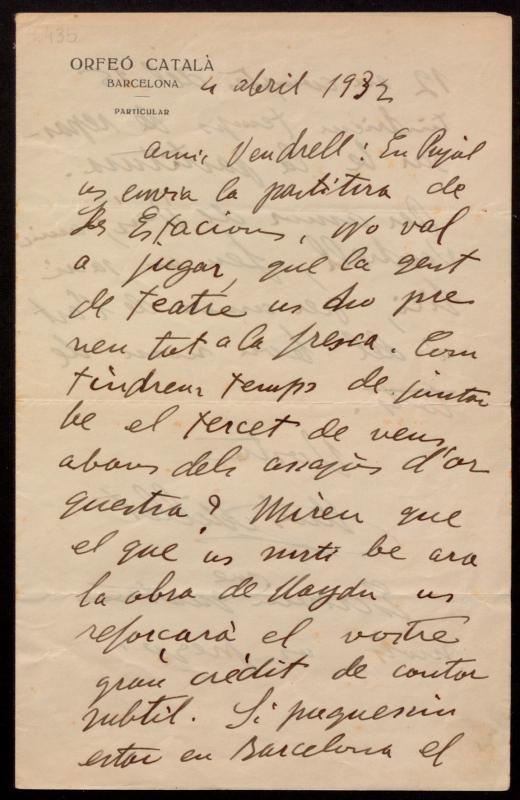 435
ORFEÓ CATALÀ
BARCELONA
PARTICULAR
4 abril 1932
Amic Vendrell: En Pujol
us envia la partitura de
Les Estacions, No val
a jugar, que la gent
de teatre us ho pre
neu tot a la fresca. Com
tindreu temps de juntar
be el tercet de veus
abans dels assajos d'or
questra? Mireu que
el que us surti be ara
la obra de Haydn us
reforçarà el vostre
gran crèdit de cantor
subtil. Si poguessiu
estar en Barcelona el